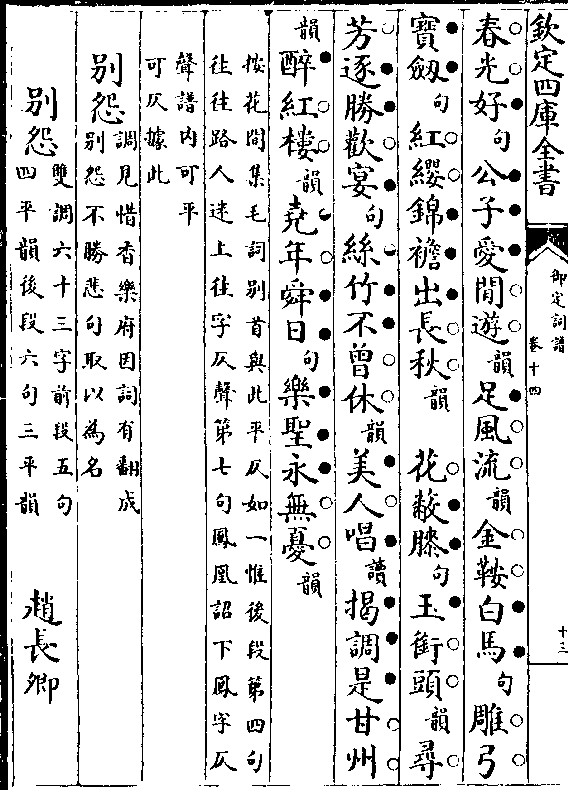 欽定四庫全書
御定詞譜
卷十四
十三
春光好句公子愛閒遊韻足風流韻金鞍白馬句雕弓
寶劔句紅纓錦襜出長秋韻 花蔽膝句玉銜頭韻尋
芳逐勝歡宴句絲竹不曾休韻美人唱讀揭調是甘州
韻醉紅樓韻堯年舜日句樂聖永無憂韻
按花間集毛詞别首與此平仄如一惟後段第四句
往往路人迷上往字仄聲第七句鳳凰詔下鳳字仄
聲譜内可平
可仄據此
别怨調見惜香樂府因詞有翻成
别怨不勝悲句取以為名
别怨雙調六十三字前段五句
四平韻後段六句三平韻 趙長卿